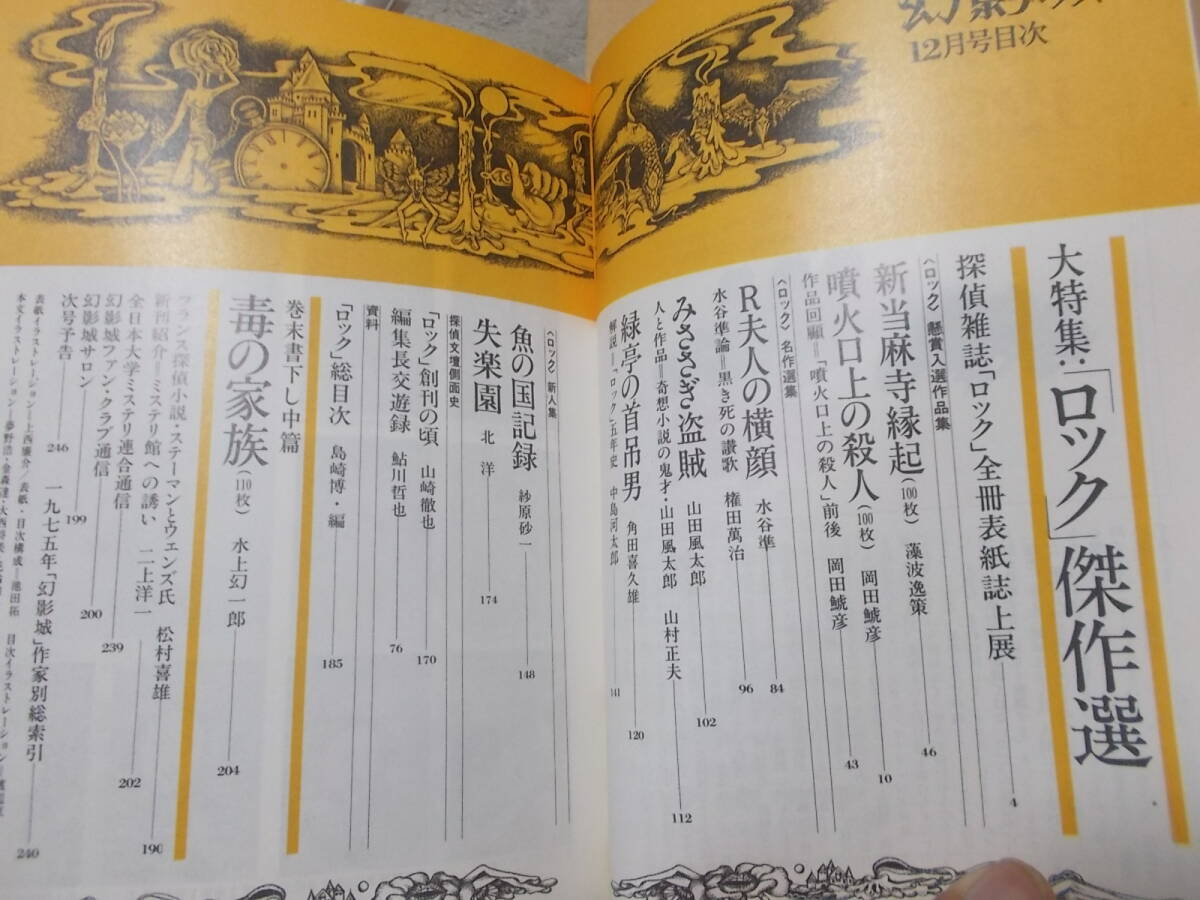 12月号目次
大特集:「ロック」傑作選
探偵雑誌「ロック」全冊表紙誌上展 4
〈ロック〉懸賞入選作品集
新当麻寺縁起(100枚) 藻波逸策 46
噴火口上の殺人(100枚) 岡田鯱彦 10
作品回顧=「噴火口上の殺人」前後 岡田鯱彦 43
〈ロック〉名作選集
R夫人の横顔 水谷準 84
水谷準論=黒き死の讃歌 権田萬治 96
みささぎ盗賊 山田風太郎 102
人と作品=奇想小説の鬼才・山田風太郎 山村正夫 112
緑亭の首吊男 角田喜久雄 120
解説=「ロック」五年史 中島河太郎 141
〈ロック〉新人集
魚の国記録 紗原砂一 148
失楽園 北洋 174
探偵文壇側面史
「ロック」創刊の頃 山崎徹也 170
編集長交遊録 鮎川哲也 76
資料
「ロック」総目次 島崎博・編 185
巻末書下し中篇
毒の家族(110枚) 水上幻一郎 204
フランス探偵小説・ステーマンとウェンズ氏 松村喜雄 190
新刊紹介=ミステリ館への誘い 二上洋一 202
全日本大学ミステリ連合通信 239
幻影城ファン・クラブ通信 200
幻影城サロン 199
次号予告 246
一九七五年「幻影城」作家別総索引 240
表紙イラストレーション=上西康介/表紙・目次構成=池田拓